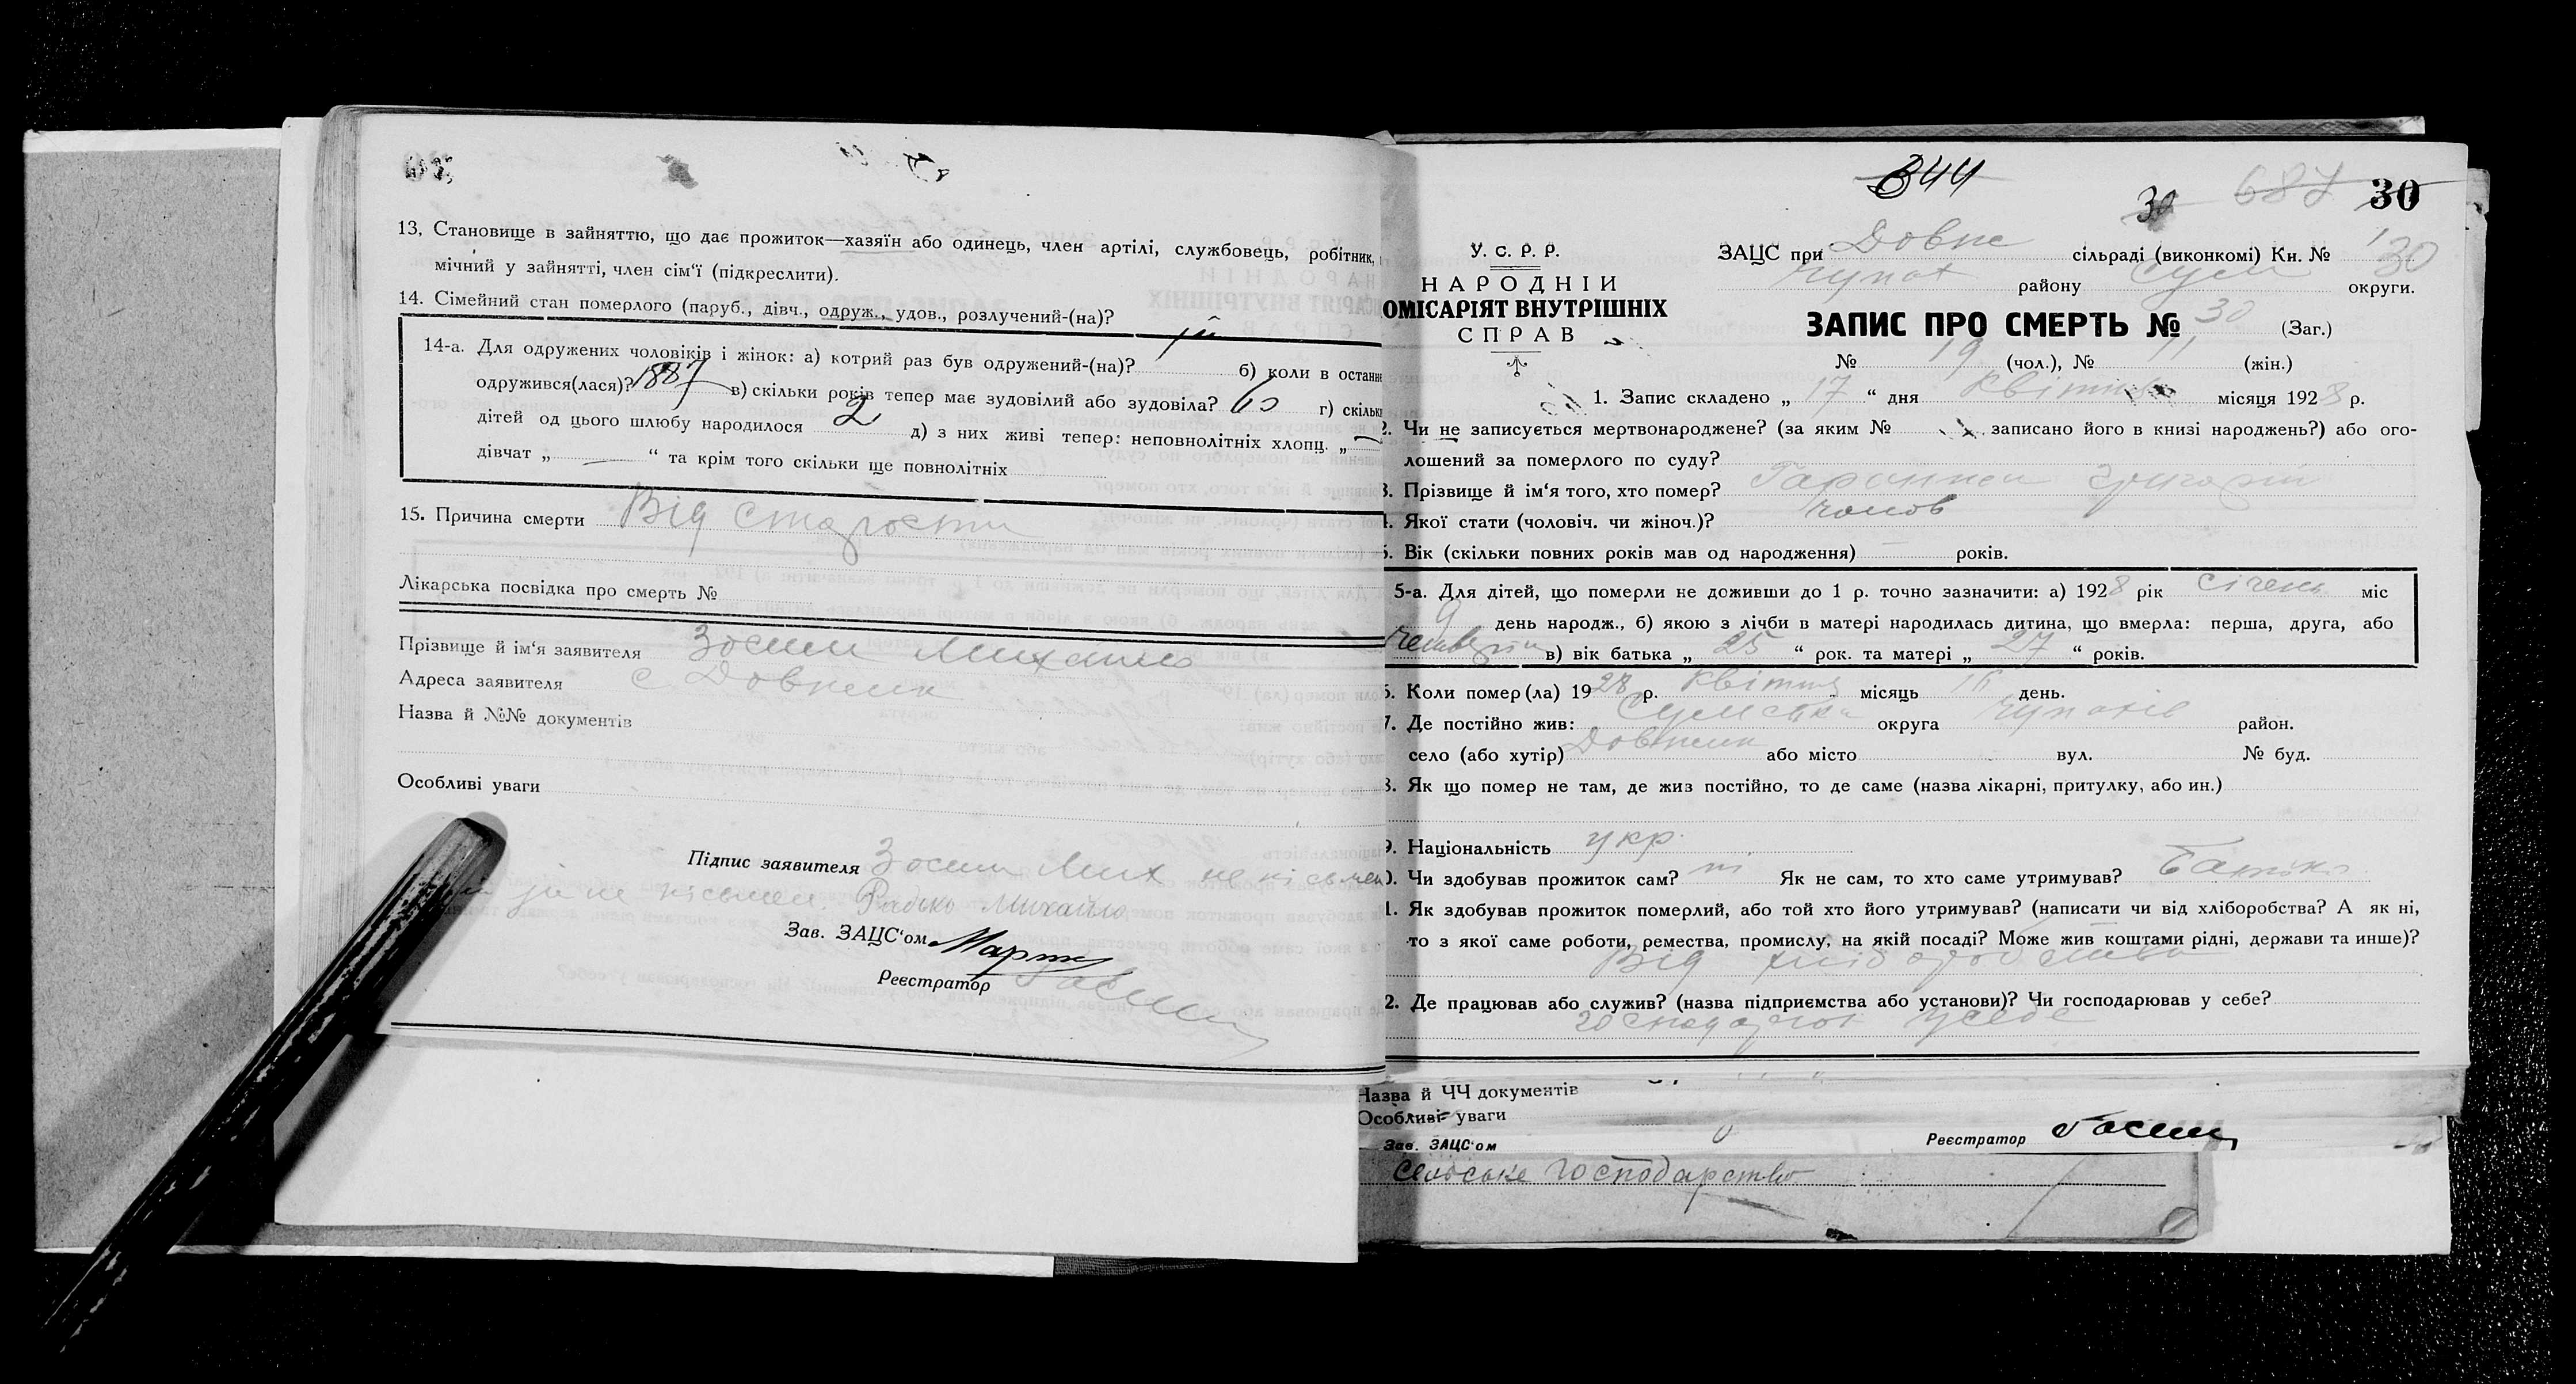 13. Становище в зайняттю, що дає прожиток—хазяїн або одинець, член артілі, службовець, робітник,
мічний у зайнятті, член сім'ї (підкреслити).
14. Сімейний стан померлого (паруб., дівч., одруж., удов., розлучений-(на)?
14-а. Для одружених чоловіків і жінок: а) котрий раз був одружений-(на)? б) коли в останнє
одружився(лася)? 1887 в) скільки років тепер має зудовілий або зудовіла? г) скільки
дітей од цього шлюбу народилося 2 д) з них живі тепер: неповнолітніх хлопц. „ —
дівчат „ — “ та крім того скільки ще повнолітніх
15. Причина смерти Від старости
Лікарська посвідка про смерть №
Прізвище й ім'я заявителя Зосим Михайло
Адреса заявителя с Довжик
Назва й №№ документів
Особливі уваги
Підпис заявителя Зосим Мих не письмен
не письмен. Радько Михайло
Зав. ЗАЦС'ом
Реєстратор
344
30 687 30
У. С. Р. Р.
НАРОДНІЙ
ОМІСАРІЯТ ВНУТРІШНІХ
СПРАВ
ЗАЦС при Довже сільраді (виконкомі) Кн. № 30
Чупах району Сум округи.
ЗАПИС ПРО СМЕРТЬ № 30 (Заг.)
№ 19 (чол.), № 11 (жін.)
1. Запис складено „ 17 “ дня Квітня місяця 1928 р.
2. Чи не записується мертвонароджене? (за яким № записано його в книзі народжень?) або ого-
лошений за померлого по суду?
3. Прізвище й ім'я того, хто помер? Григорій
4. Якої стати (чоловіч. чи жіноч.)? чолов
5. Вік (скільки повних років мав од народження) — років.
5-а. Для дітей, що померли не доживши до 1 р. точно зазначити: а) 1928 рік січень міс
9 день народж., б) якою з лічби в матері народилась дитина, що вмерла: перша, друга, або
в) вік батька „ 25 “ рок. та матері „ 27 “ років.
6. Коли помер(ла) 1928 р. Квітня місяць 16 день.
7. Де постійно жив: Сумська округа Чупахів район.
село (або хутір) Довжик або місто вул. № буд.
8. Як що помер не там, де жив постійно, то де саме (назва лікарні, притулку, або ин.)
9. Національність укр.
0. Чи здобував прожиток сам? ні Як не сам, то хто саме утримував? Батько
1. Як здобував прожиток померлий, або той хто його утримував? (написати чи від хліборобства? А як ні,
то з якої саме роботи, ремества, промислу, на якій посаді? Може жив коштами рідні, держави та инше)?
Від хліборобства
2. Де працював або служив? (назва підприємства або установи)? Чи господарював у себе?
господарює усебе
Назва й ЧЧ документів
Особливі уваги
Зав. ЗАЦС'ом Реєстратор
сельське господарство